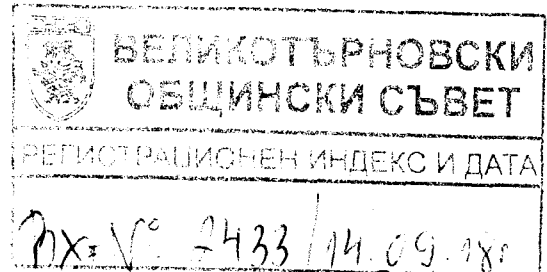 ВЕЛИКОТЪРНОВСКИ
ОБЩИНСКИ СЪВЕТ
РЕГИСТРАЦИОНЕН ИНДЕКС И ДАТА
Вх. № 2433/14.09.18г.